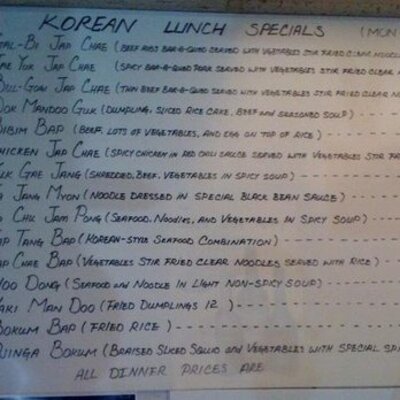 KOREAN LUNCH SPECIALS (MON
AL-BI JAP CHAE (BEEF RIBS BAR-B-QUED SERVED WITH VEGETABLES STIR FRIED CLEAR NOODLE
YUK JAP CHAE (SPICY BAR-B-QUED PORK SERVED WITH VEGETABLES STIR FRIED CLEAR
BUL-GOGI JAP CHAE (THIN BEEF BAR-B-QUED SERVED WITH VEGETABLES STIR FRIED CLEAR NO
MANDOO GUK (DUMPLING, SLICED RICE CAKE, BEEF AND SEASONED SOUP)
BIBIM BAP (BEEF, LOTS OF VEGETABLES, AND EGG ON TOP OF RICE)
CHICKEN JAP CHAE (SPICY CHICKEN IN RED CHILI SAUCE SERVED WITH VEGETABLES STIR FR
GAE JANG (SHREDDED, BEEF, VEGETABLES IN SPICY SOUP)
JANG MYON (NOODLE DRESSED IN SPECIAL BLACK BEAN SAUCE)
JAM PONG (SEAFOOD, NOODLES, AND VEGETABLES IN SPICY SOUP)
AP TANG BAP (KOREAN-STYLE SEAFOOD COMBINATION)
AP CHAE BAP (VEGETABLES STIR FRIED CLEAR NOODLES SERVED WITH RICE)
DONG (SEAFOOD AND NOODLE IN LIGHT NON-SPICY SOUP)
AKI MAN DOO (FRIED DUMPLINGS 12)
BOKUM BAP (FRIED RICE)
JINGA BOKUM (BRAISED SLICED SQUID AND VEGETABLES WITH SPECIAL SP
ALL DINNER PRICES ARE